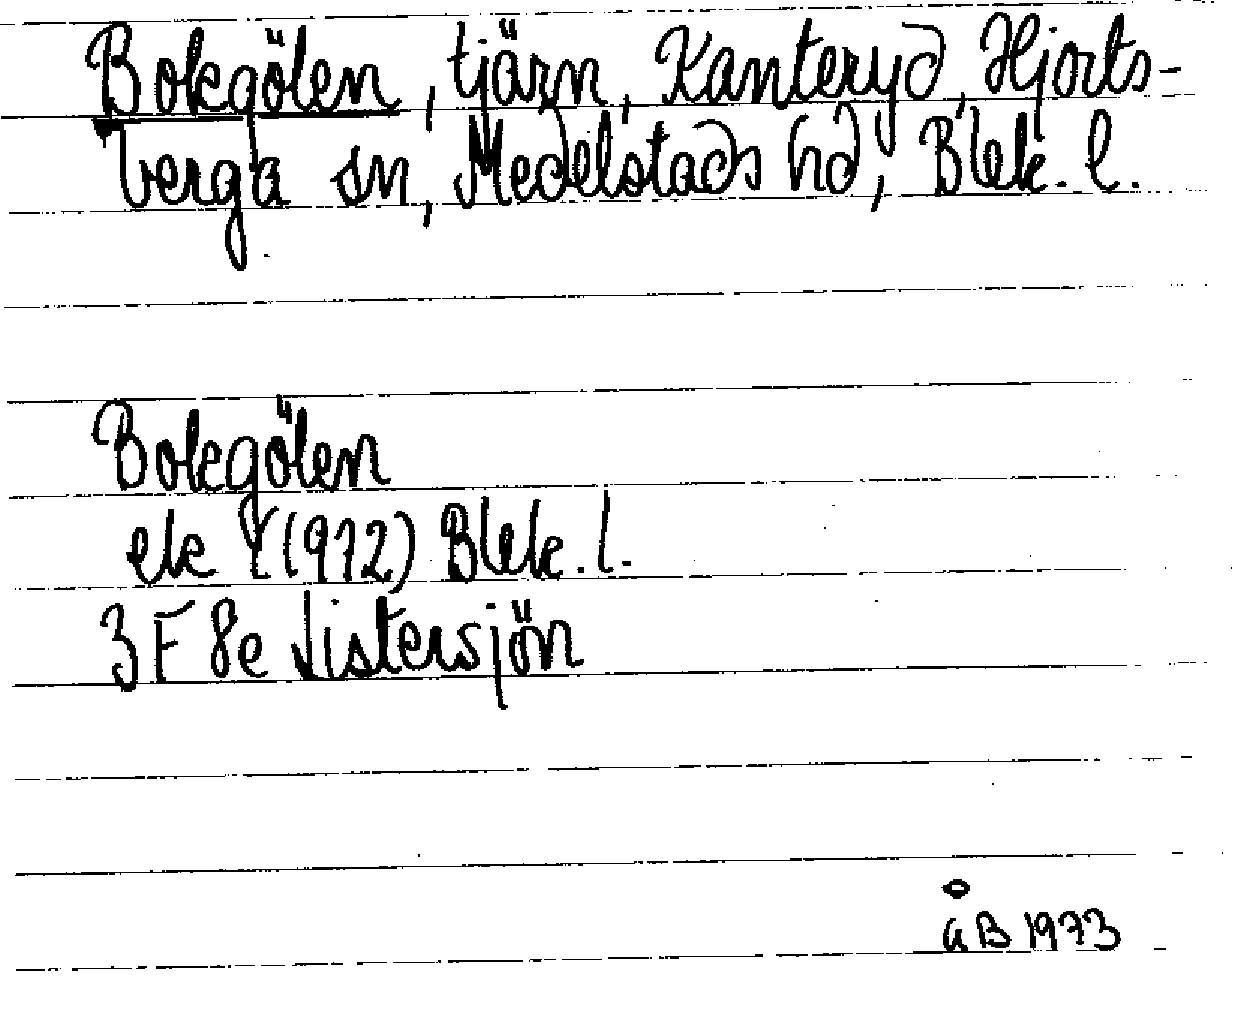 Bokgölen, tjärn, Kanteryd, Hjorts-
berga sn, Medelstads hd, Blek. l.
Bokgölen
ek Y (1972) Blek. l.
3F 8e Listersjön
ÅB 1973